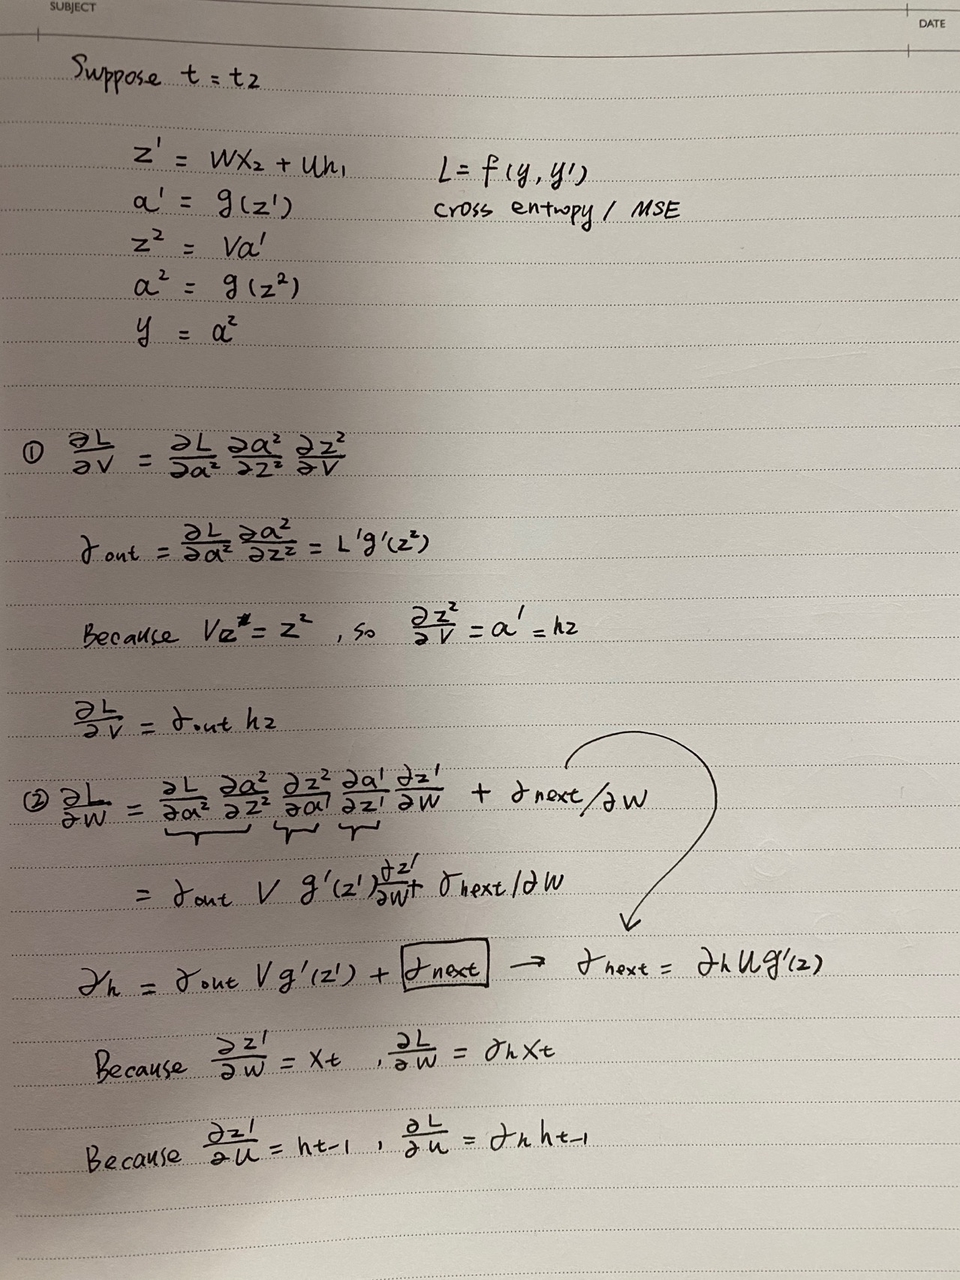 SUBJECT
DATE
Suppose t = t2
z¹ = Wx₂ + Uh₁ L = f(y, y')
a¹ = g(z¹) cross entropy / MSE
z² = Va¹
a² = g(z²)
y = a²
① ∂L/∂V = ∂L/∂a² ∂a²/∂z² ∂z²/∂V
∂out = ∂L/∂a² ∂a²/∂z² = L'g'(z²)
Because = z² , so ∂z²/∂V = a¹ = h₂
∂L/∂V = ∂out h₂
② ∂L/∂W = ∂L/∂a² ∂a²/∂z² ∂z²/∂a¹ ∂a¹/∂z¹ ∂z¹/∂W + ∂next/∂W
= ∂out V g'(z¹) ∂z¹/∂W + ∂next/∂W
∂h = ∂out V g'(z¹) + ∂next → ∂next = ∂h U g'(z)
Because ∂z¹/∂W = xt , ∂L/∂W = ∂h xt
Because ∂z¹/∂U = ht-1 , ∂L/∂U = ∂h ht-1